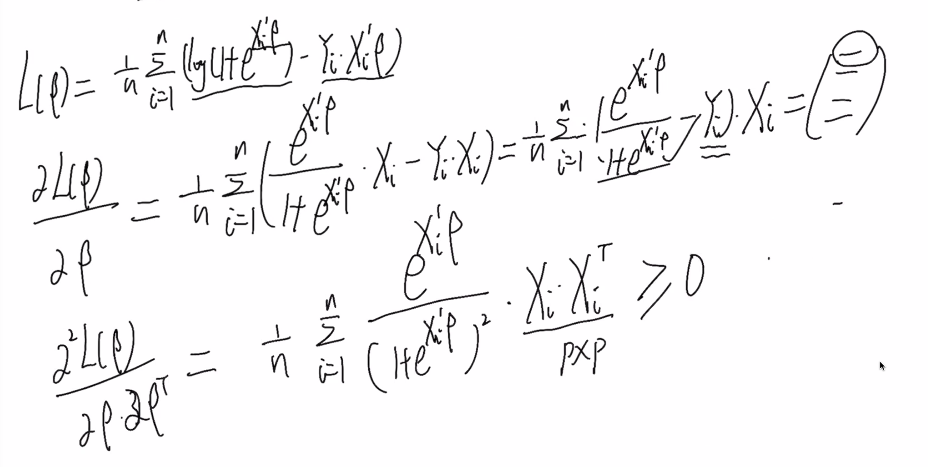 L(β) = 1/n Σ_{i=1}^{n} (log(1+e^{X_i'β}) - Y_i·X_i'β)
∂L(β)/∂β = 1/n Σ_{i=1}^{n} (e^{X_i'β}/(1+e^{X_i'β}) · X_i - Y_i·X_i) = 1/n Σ_{i=1}^{n} (e^{X_i'β}/(1+e^{X_i'β}) - Y_i)·X_i = (
∂²L(β)/∂β·∂β^T = 1/n Σ_{i=1}^{n} e^{X_i'β}/(1+e^{X_i'β})² · X_i·X_i^T ≥ 0
p×p